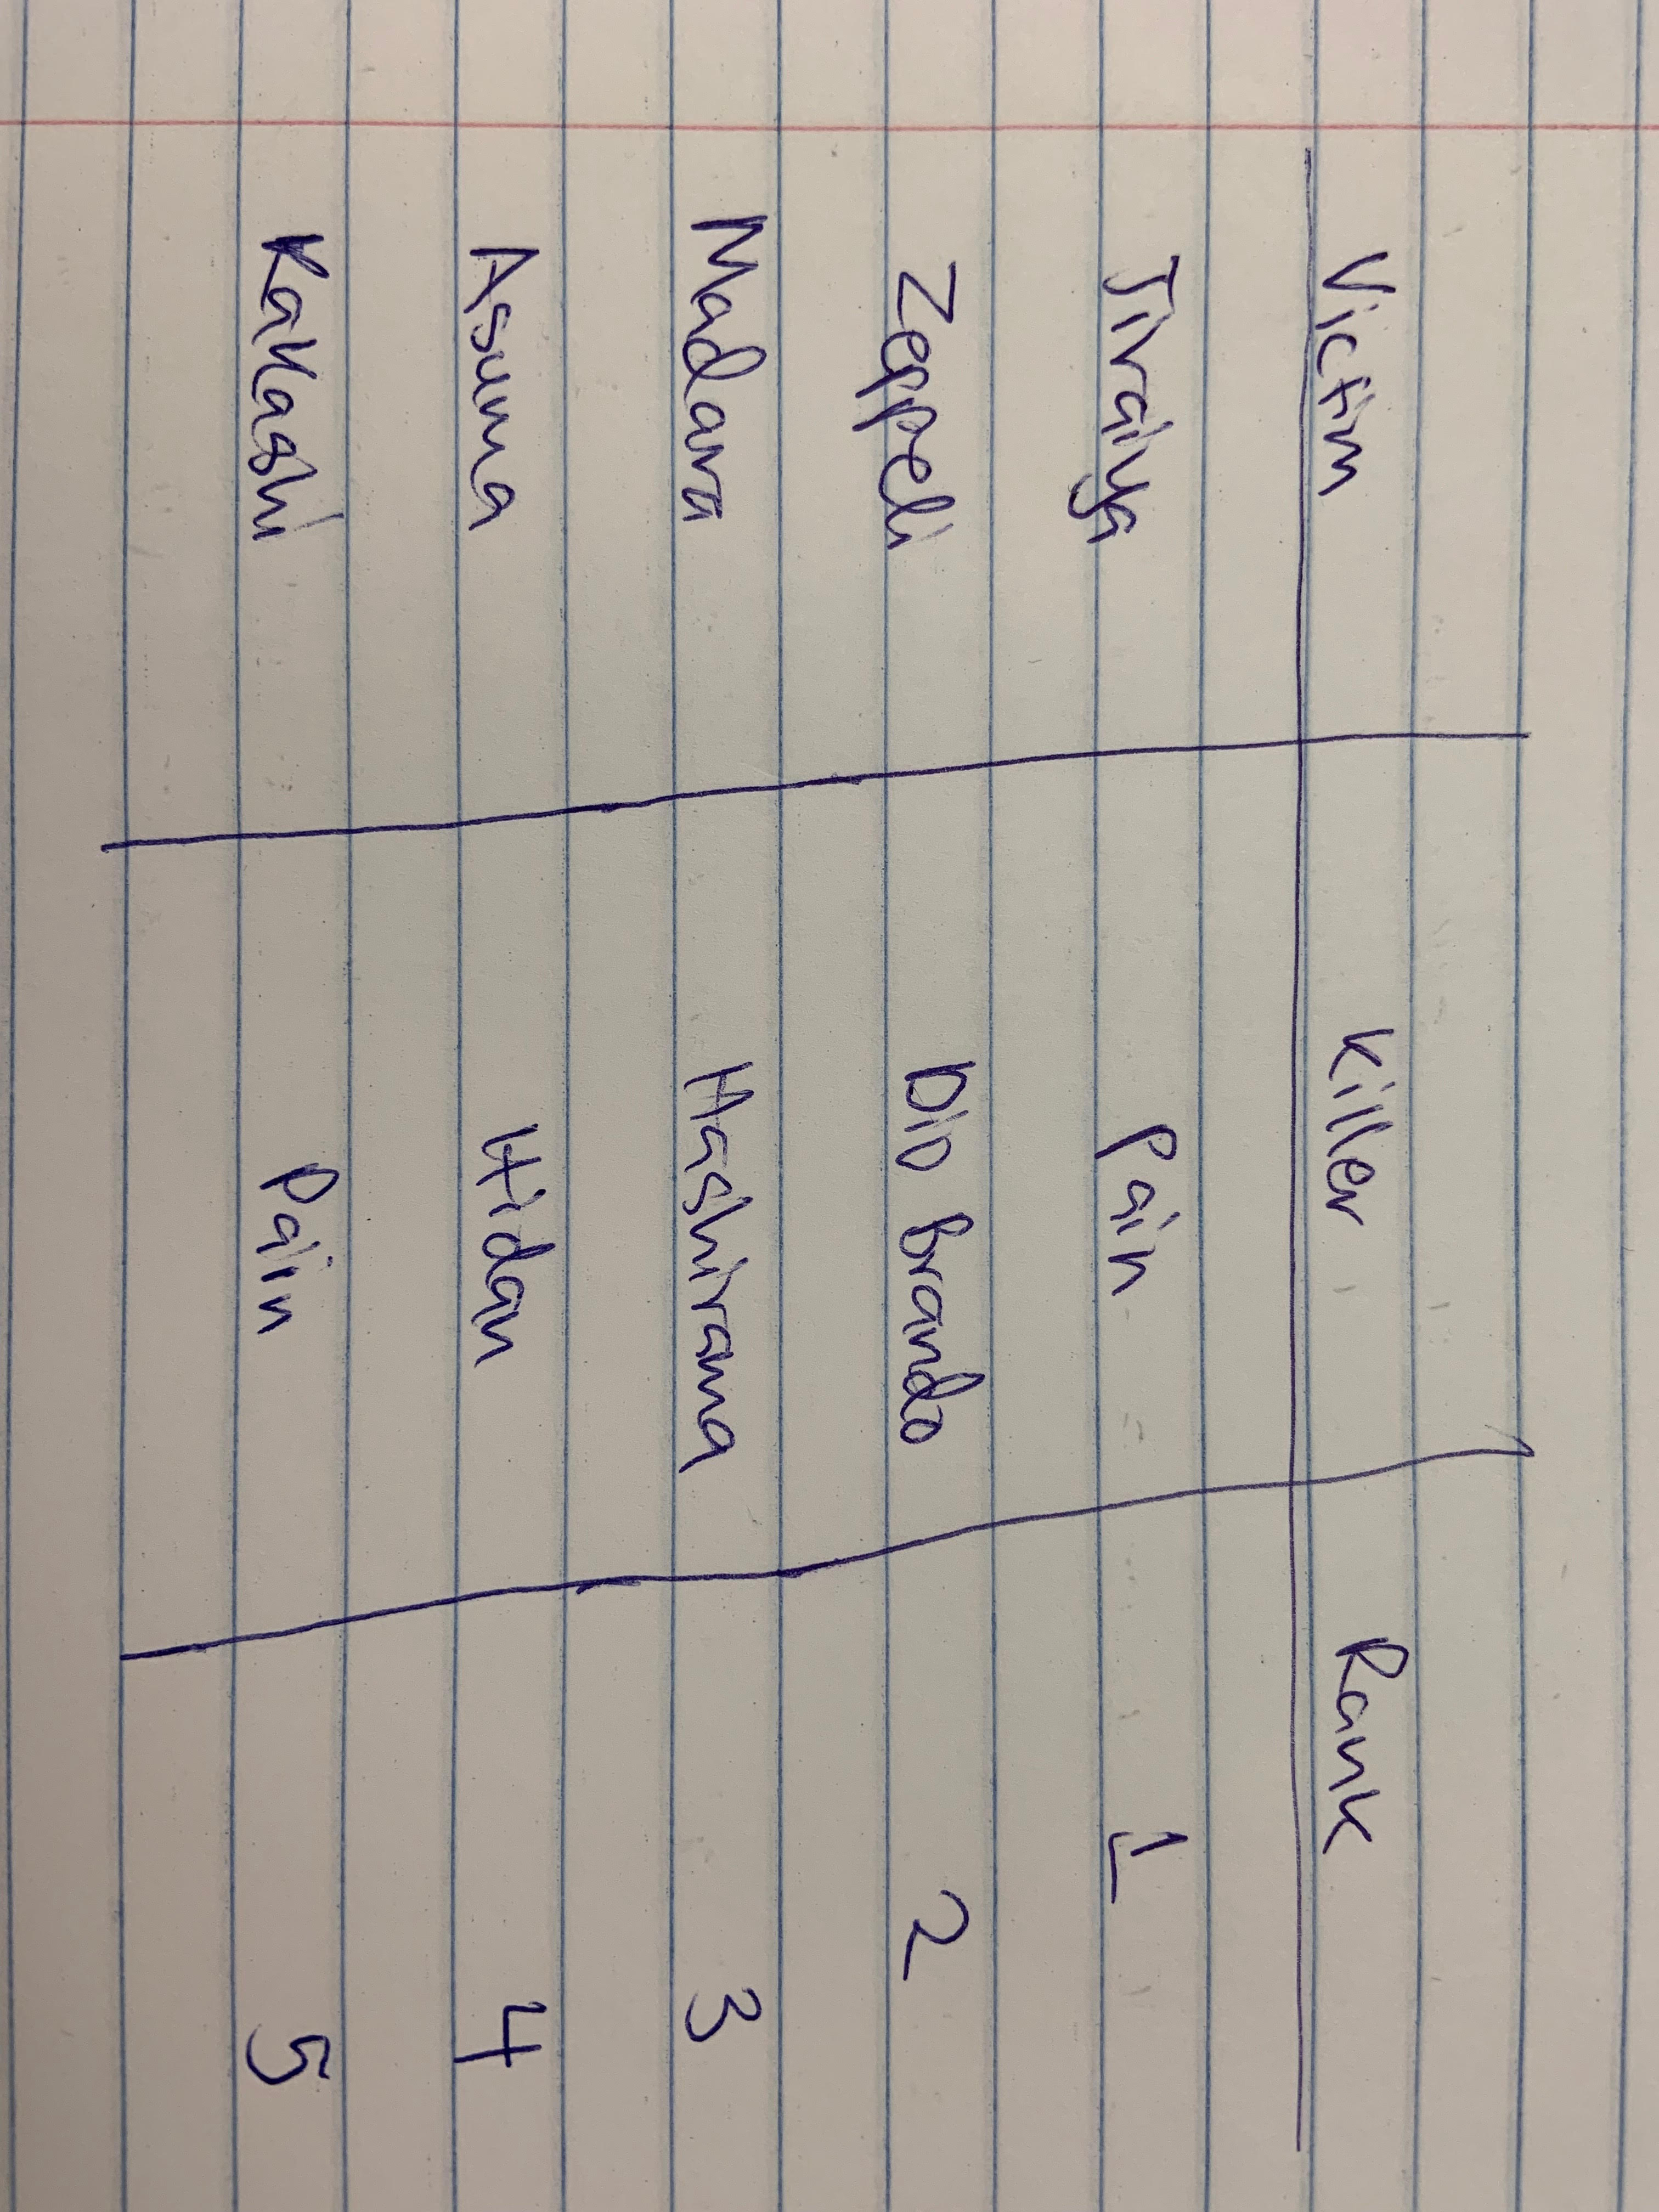 Victim Killer Rank
Jiraiya Pain 1
Zeppeli Dio Brando 2
Madara Hashirama 3
Asuma Hidan 4
Kakashi Pain 5